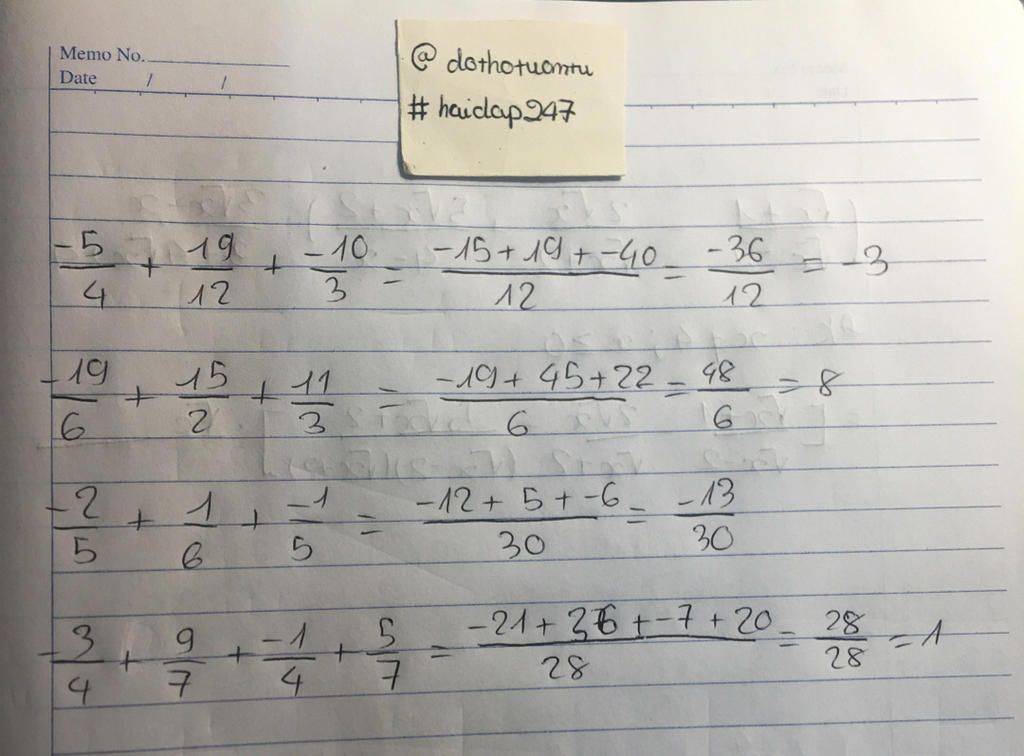 Memo No.
Date / /
@ dothotuomtu
# haidap247
-5/4 + 19/12 + -10/3 = -15 + 19 + -40/12 = -36/12 = -3
-19/6 + 15/2 + 11/3 = -19 + 45 + 22/6 = 48/6 = 8
-2/5 + 1/6 + -1/5 = -12 + 5 + -6/30 = -13/30
-3/4 + 9/7 + -1/4 + 5/7 = -21 + 36 + -7 + 20/28 = 28/28 = 1